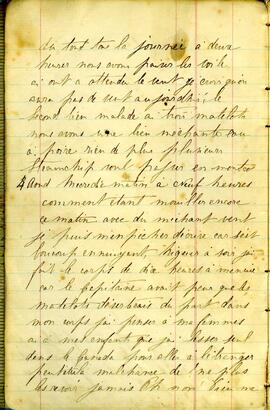 du tout tou la journée a deux
heures nous avons les voile
a on a attendu le vent je crois qu'on
aura pas de vent aujordhui le
second bien malade a trois matelots
nous avons une bien méchante eau
a boire rien de plus plusieurs
steamship sont passer en montee
4 Aout Mercredi matin a neuf heures
comment étant mouiller encore
ce matin avec du méchant vent
je puis m'enpecher d'ecrire car sait
boucoup ennuyant, hiquer a soir j'ai
fait le corps de dix heures a menuie
car le Capitaine avait peur que des
matelots du part dans
mon corps j'ai penser a ma femmes
a a met enfent que j'ai lesser seul
dans le Canada pour allee a l'étrenger
peut être malchance de ne plus
les voir jamais Oh non! Dieu me